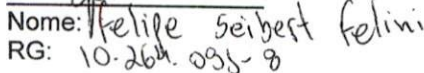 Nome: Felipe Seibert Felini
RG: 10.264.095-8